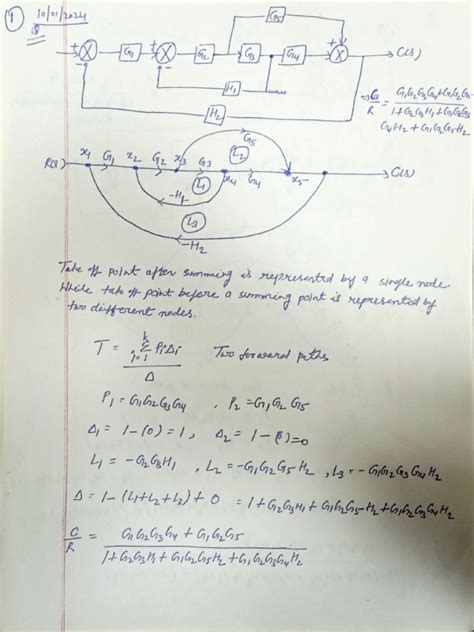 ① 10/01/2024
G5
+ X G1 + X G2 G3 G4 + X C(S)
- - +
H1
H2
⇒ C/R = G1G2G3G4+G1G2G5
1+G2G3H1+G1G2G3
G4H2+G1G2G5H2
G5
R(S) x1 G1 x2 G2 x3 G3 L2 x4 G4 x5 C(S)
L1
-H1
L3
-H2
Take off point after summing is represented by a single node
While take off point before a summing point is represented by
two different nodes.
T = k Σ i=1 PiΔi / Δ Two forward paths
P1 = G1G2G3G4 , P2 = G1G2G5
Δ1 = 1-(0)=1 , Δ2 = 1-(0)=0
L1 = -G2G3H1 , L2 = -G1G2G5H2 , L3 = -G1G2G3G4H2
Δ = 1-(L1+L2+L3)+0 = 1+G2G3H1+G1G2G5H2+G1G2G3G4H2
C/R = G1G2G3G4+G1G2G5
1+G2G3H1+G1G2G5H2+G1G2G3G4H2